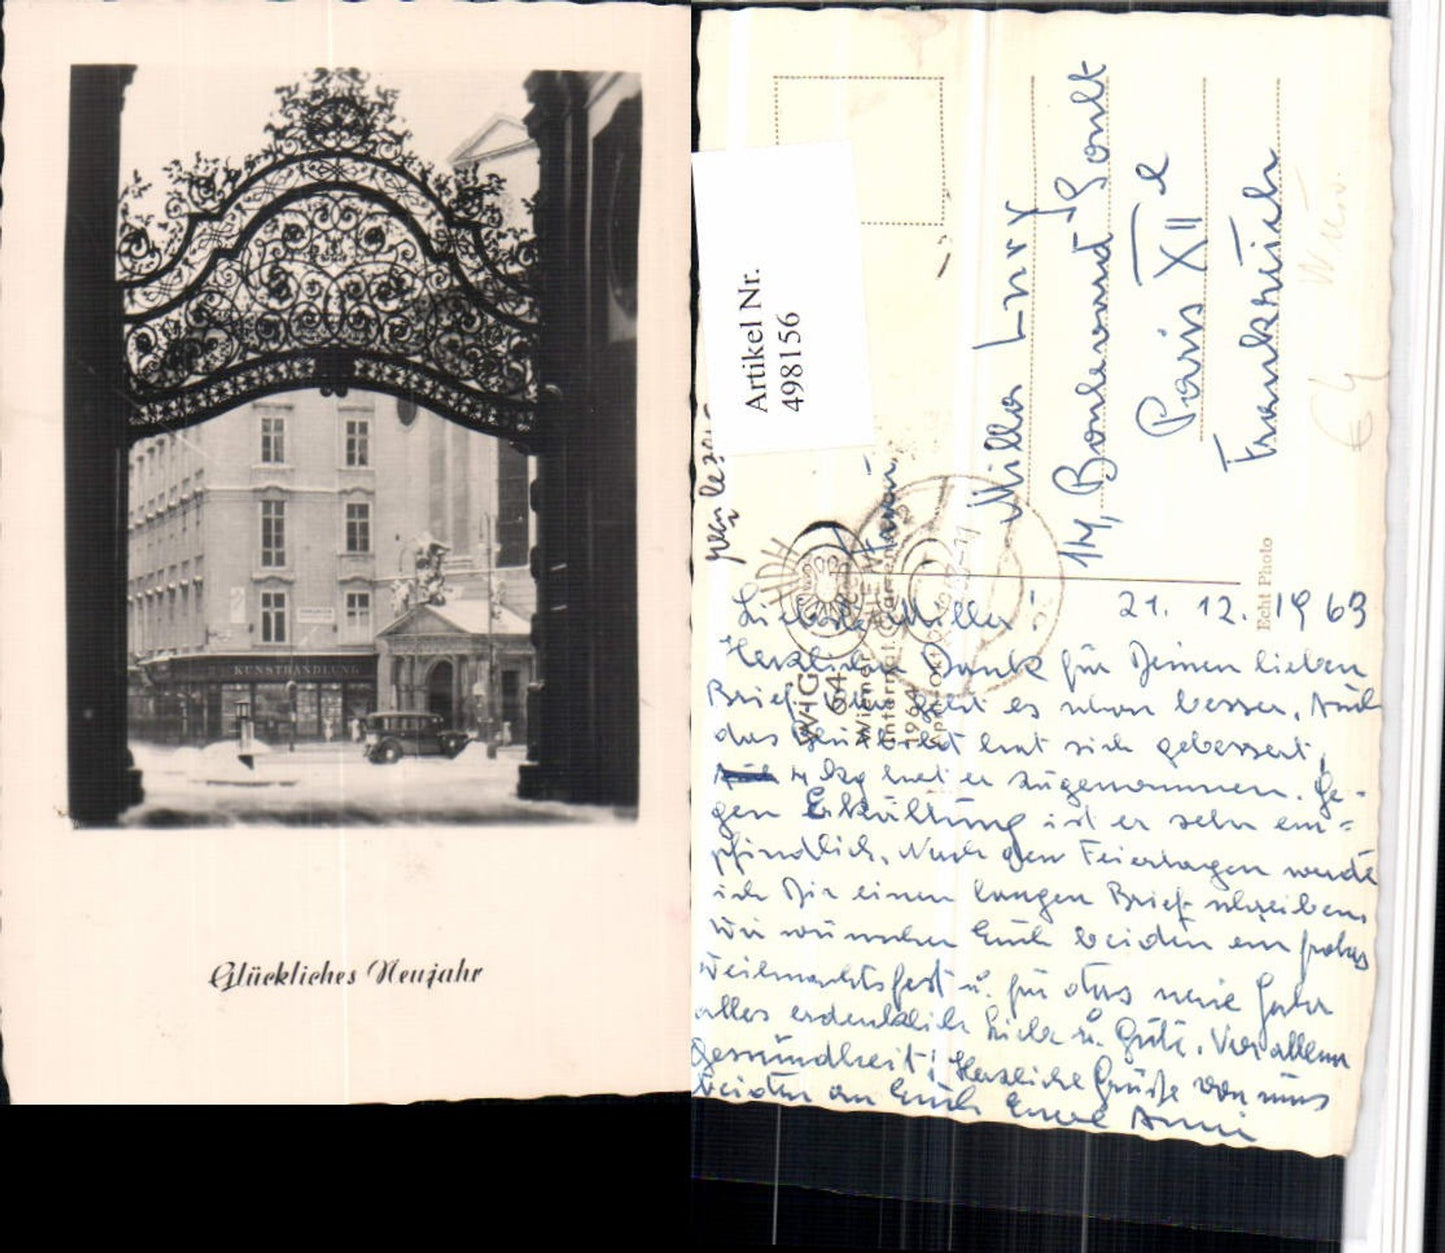 KUNSTHANDLUNG
Glückliches Neujahr
Artikel Nr.
498156
Milla Lury
14, Boulevard Soult
Paris XII e
Frankreich
Wien
€ 4
Echt Photo
WIG
64
Wiener
Internat.
1964
April-Okt
21. 12. 1963
Liebste Miller!
Herzlichen Dank für Deinen lieben
Brief. geht es schon besser. Auch
das Blutbild hat sich gebessert,
4 kg hat er zugenommen. Ge-
gen Erkältung ist er sehr em=
pfindlich. Nach den Feiertagen werde
ich Dir einen langen Brief schreiben.
Wir wünschen Euch beiden ein frohes
Weihnachtsfest u. für das neue Jahr
alles erdenklich Liebe u. Gute. Vor allem
Gesundheit! Herzliche Grüße von uns
beiden an Euch Eure Anni